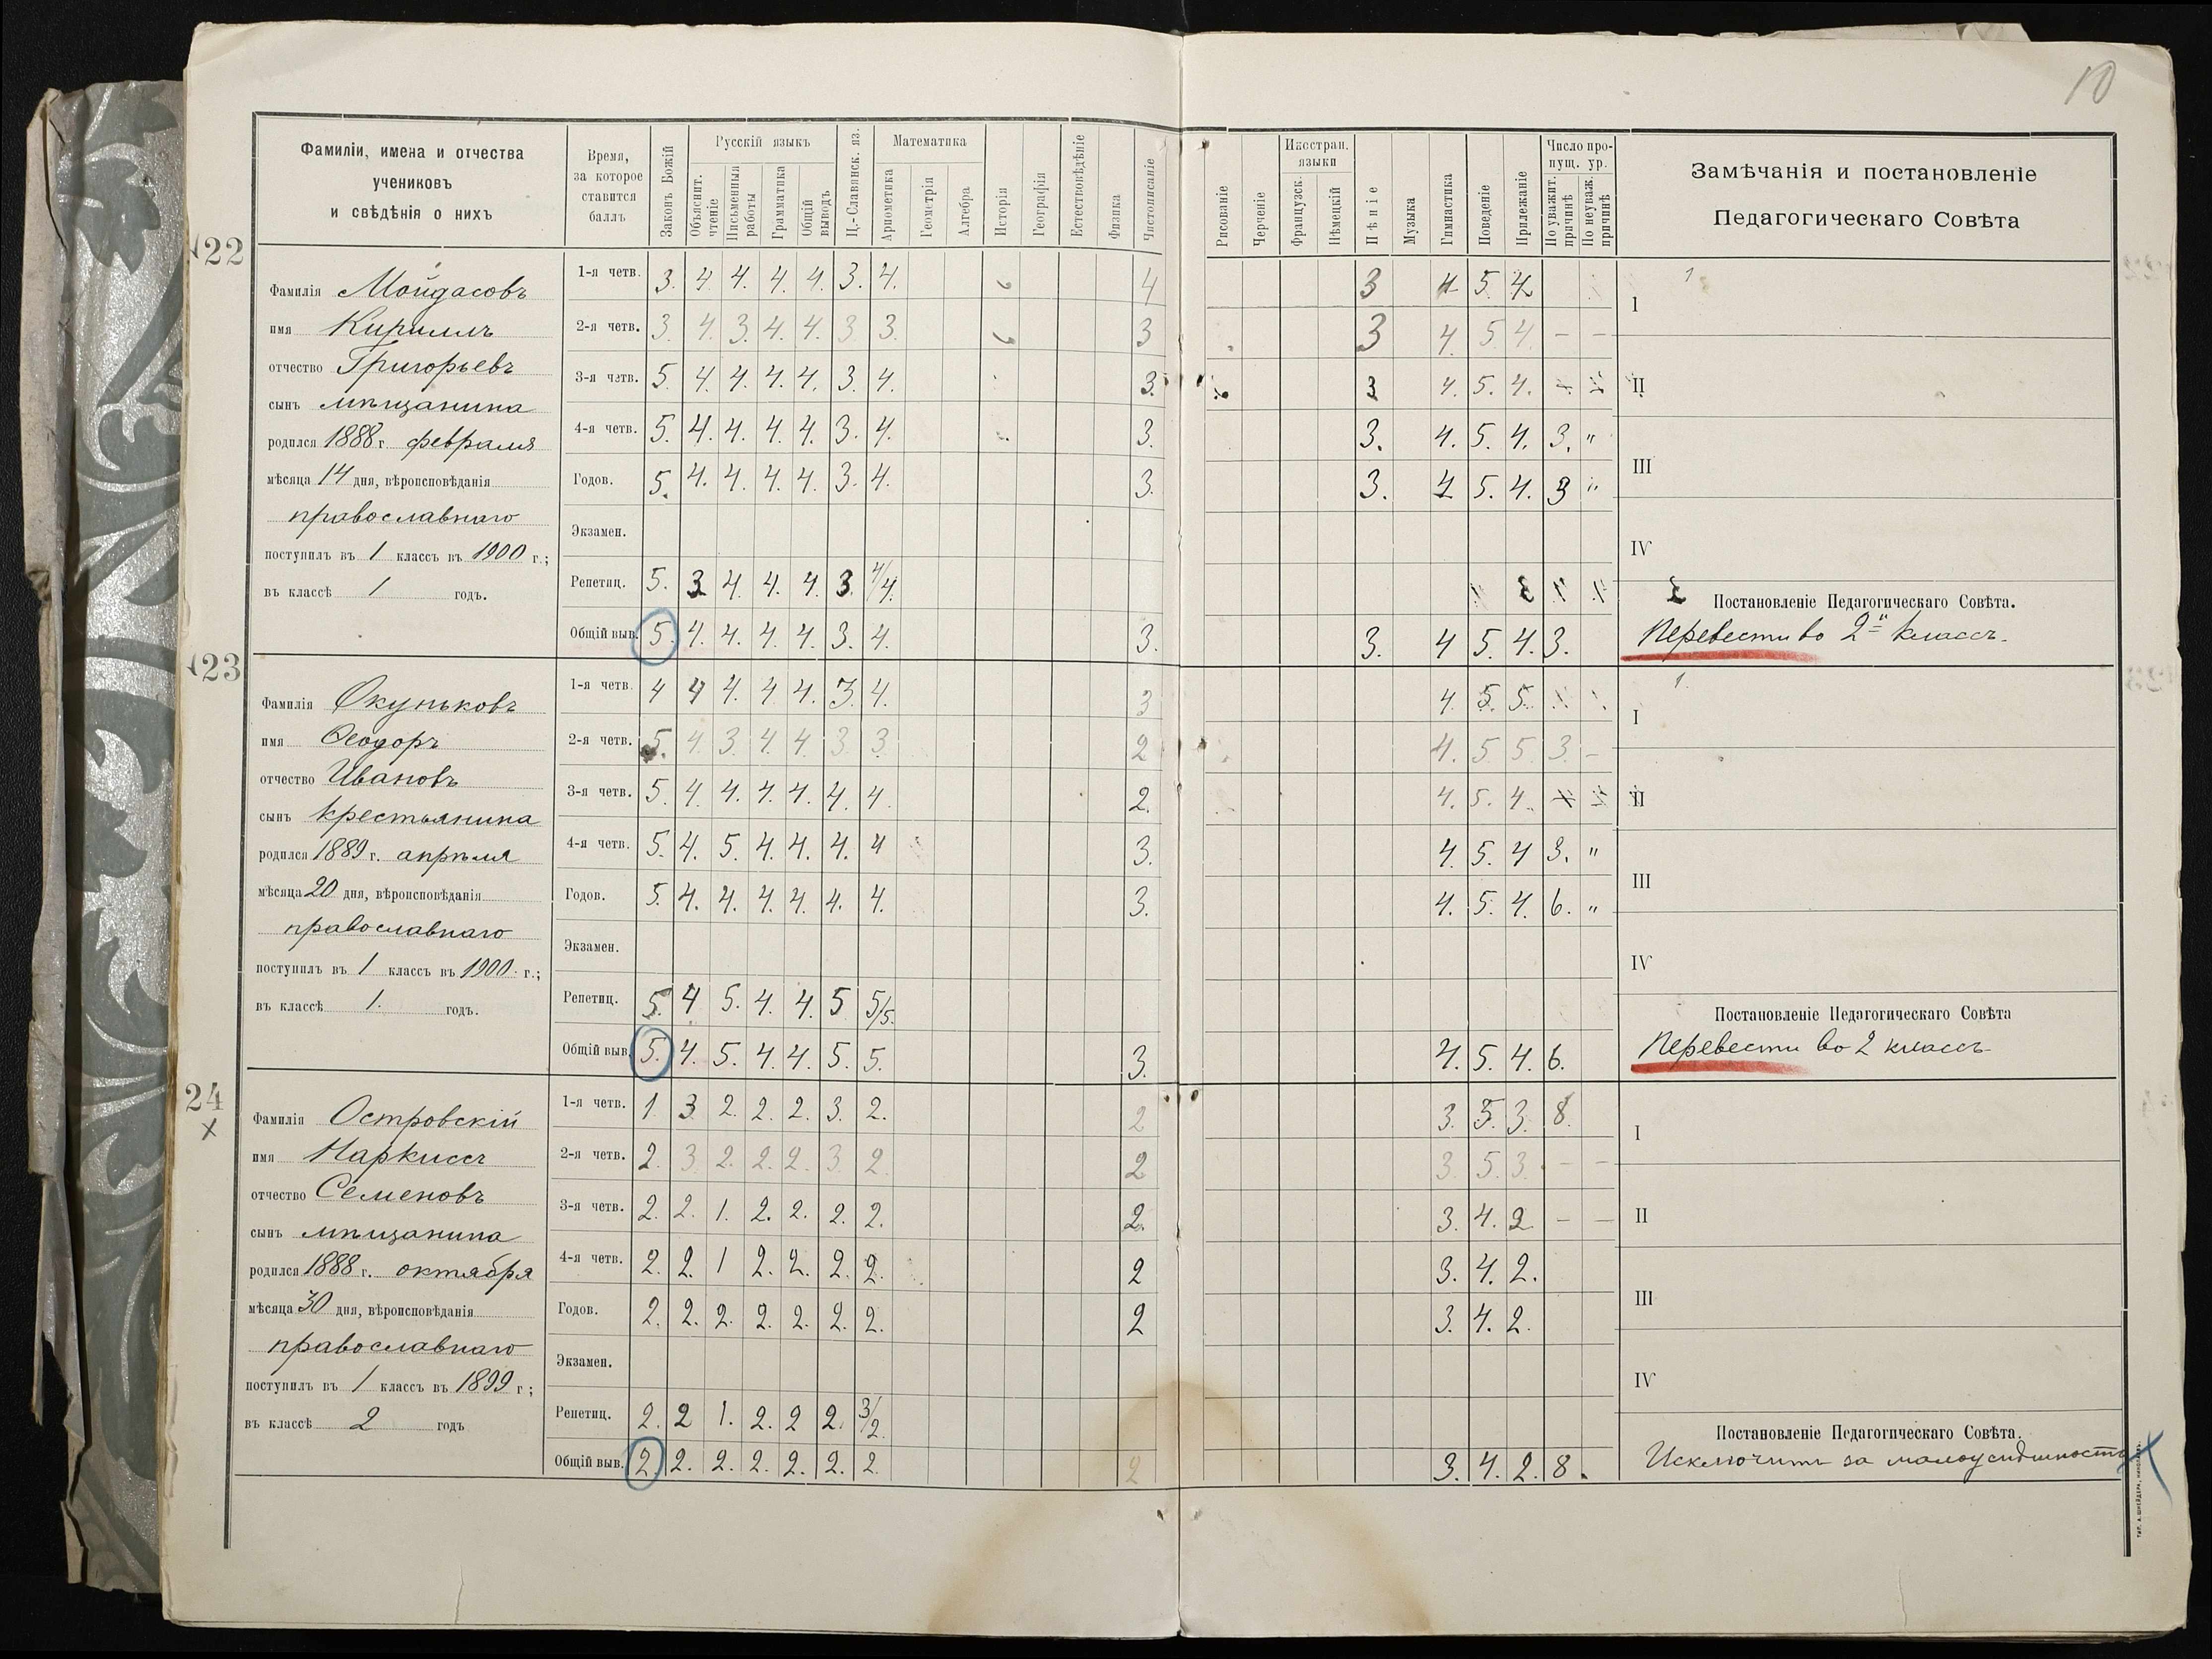 10
Фамиліи, имена и отчества
учениковъ
и свѣдѣнія о нихъ
Время,
за которое
ставится
баллъ
Законъ Божій
Русскій языкъ
Объяснит.
чтеніе
Письменныя
работы
Грамматика
Общій
выводъ
Ц.-Славянск. яз.
Математика
Ариѳметика
Геометрія
Алгебра
Исторія
Географія
Естествовѣдѣніе
Физика
Чистописаніе
Рисованіе
Черченіе
Иностран.
языки
Французск.
Нѣмецкій
Пѣніе
Музыка
Гимнастика
Поведеніе
Прилежаніе
Число про-
пущ. ур.
По уважит.
причинѣ
По неуваж.
причинѣ
Замѣчанія и постановленіе
Педагогическаго Совѣта
22
Фамилія Мойдасовъ
имя Кириллъ
отчество Григорьевъ
сынъ мѣщанина
родился 1888 г. февраля
мѣсяца 14 дня, вѣроисповѣданія
православнаго
поступилъ въ 1 классъ въ 1900 г.;
въ классѣ 1 годъ.
1-я четв. 3. 4 4. 4. 4. 3. 4. 4 3 4 5. 4
2-я четв. 3. 4. 3. 4. 4. 3 3. 3 3 4. 5 4. — —
3-я четв. 5. 4. 4. 4. 4. 3. 4. 3. 3 4. 5. 4.
4-я четв. 5. 4. 4. 4. 4. 3. 4. 3. 3. 4. 5. 4. 3. "
Годов. 5. 4. 4. 4. 4. 3. 4. 3. 3. 4 5. 4. 3 "
Экзамен.
Репетиц. 5. 3 4. 4. 4. 3. 4/4.
Общій выв. 5. 4. 4. 4. 4. 3. 4. 3. 3. 4 5. 4. 3.
I
II
III
IV
Постановленіе Педагогическаго Совѣта.
Перевести во 2й классъ.
23
Фамилія Окуньковъ
имя Ѳеодоръ
отчество Ивановъ
сынъ крестьянина
родился 1889 г. апрѣля
мѣсяца 20 дня, вѣроисповѣданія
православнаго
поступилъ въ 1 классъ въ 1900 г.;
въ классѣ 1. годъ.
1-я четв. 4 4 4. 4 4. 3. 4. 3 4. 5. 5.
2-я четв. 5. 4. 3. 4. 4. 3. 3. 2 4. 5 5. 3. —
3-я четв. 5. 4. 4. 4. 4. 4. 4. 2. 4. 5. 4.
4-я четв. 5. 4. 5. 4. 4. 4. 4 3. 4. 5. 4 3. "
Годов. 5. 4. 4. 4. 4. 4. 4. 3. 4. 5. 4. 6. "
Экзамен.
Репетиц. 5. 4 5. 4. 4. 5 5/5.
Общій выв. 5. 4. 5. 4. 4. 5. 5. 3. 4. 5. 4. 6.
I
II
III
IV
Постановленіе Педагогическаго Совѣта
Перевести во 2 классъ
24
x
Фамилія Островскій
имя Наркиссъ
отчество Семеновъ
сынъ мѣщанина
родился 1888 г. октября
мѣсяца 30 дня, вѣроисповѣданія
православнаго
поступилъ въ 1 классъ въ 1899 г;
въ классѣ 2 годъ
1-я четв. 1. 3 2. 2. 2. 3. 2. 2 3. 5. 3. 8.
2-я четв. 2. 3 2. 2. 2. 3. 2. 2 3. 5 3. — —
3-я четв. 2. 2. 1. 2. 2. 2. 2. 2. 3. 4. 2 — —
4-я четв. 2. 2. 1 2. 2. 2. 2. 2 3. 4. 2.
Годов. 2. 2. 2. 2. 2. 2. 2. 2 3. 4. 2.
Экзамен.
Репетиц. 2. 2 1. 2. 2 2. 3/2.
Общій выв. 2. 2. 2. 2. 2. 2. 2. 2 3. 4. 2. 8.
I
II
III
IV
Постановленіе Педагогическаго Совѣта.
Исключить за малоуспѣшность